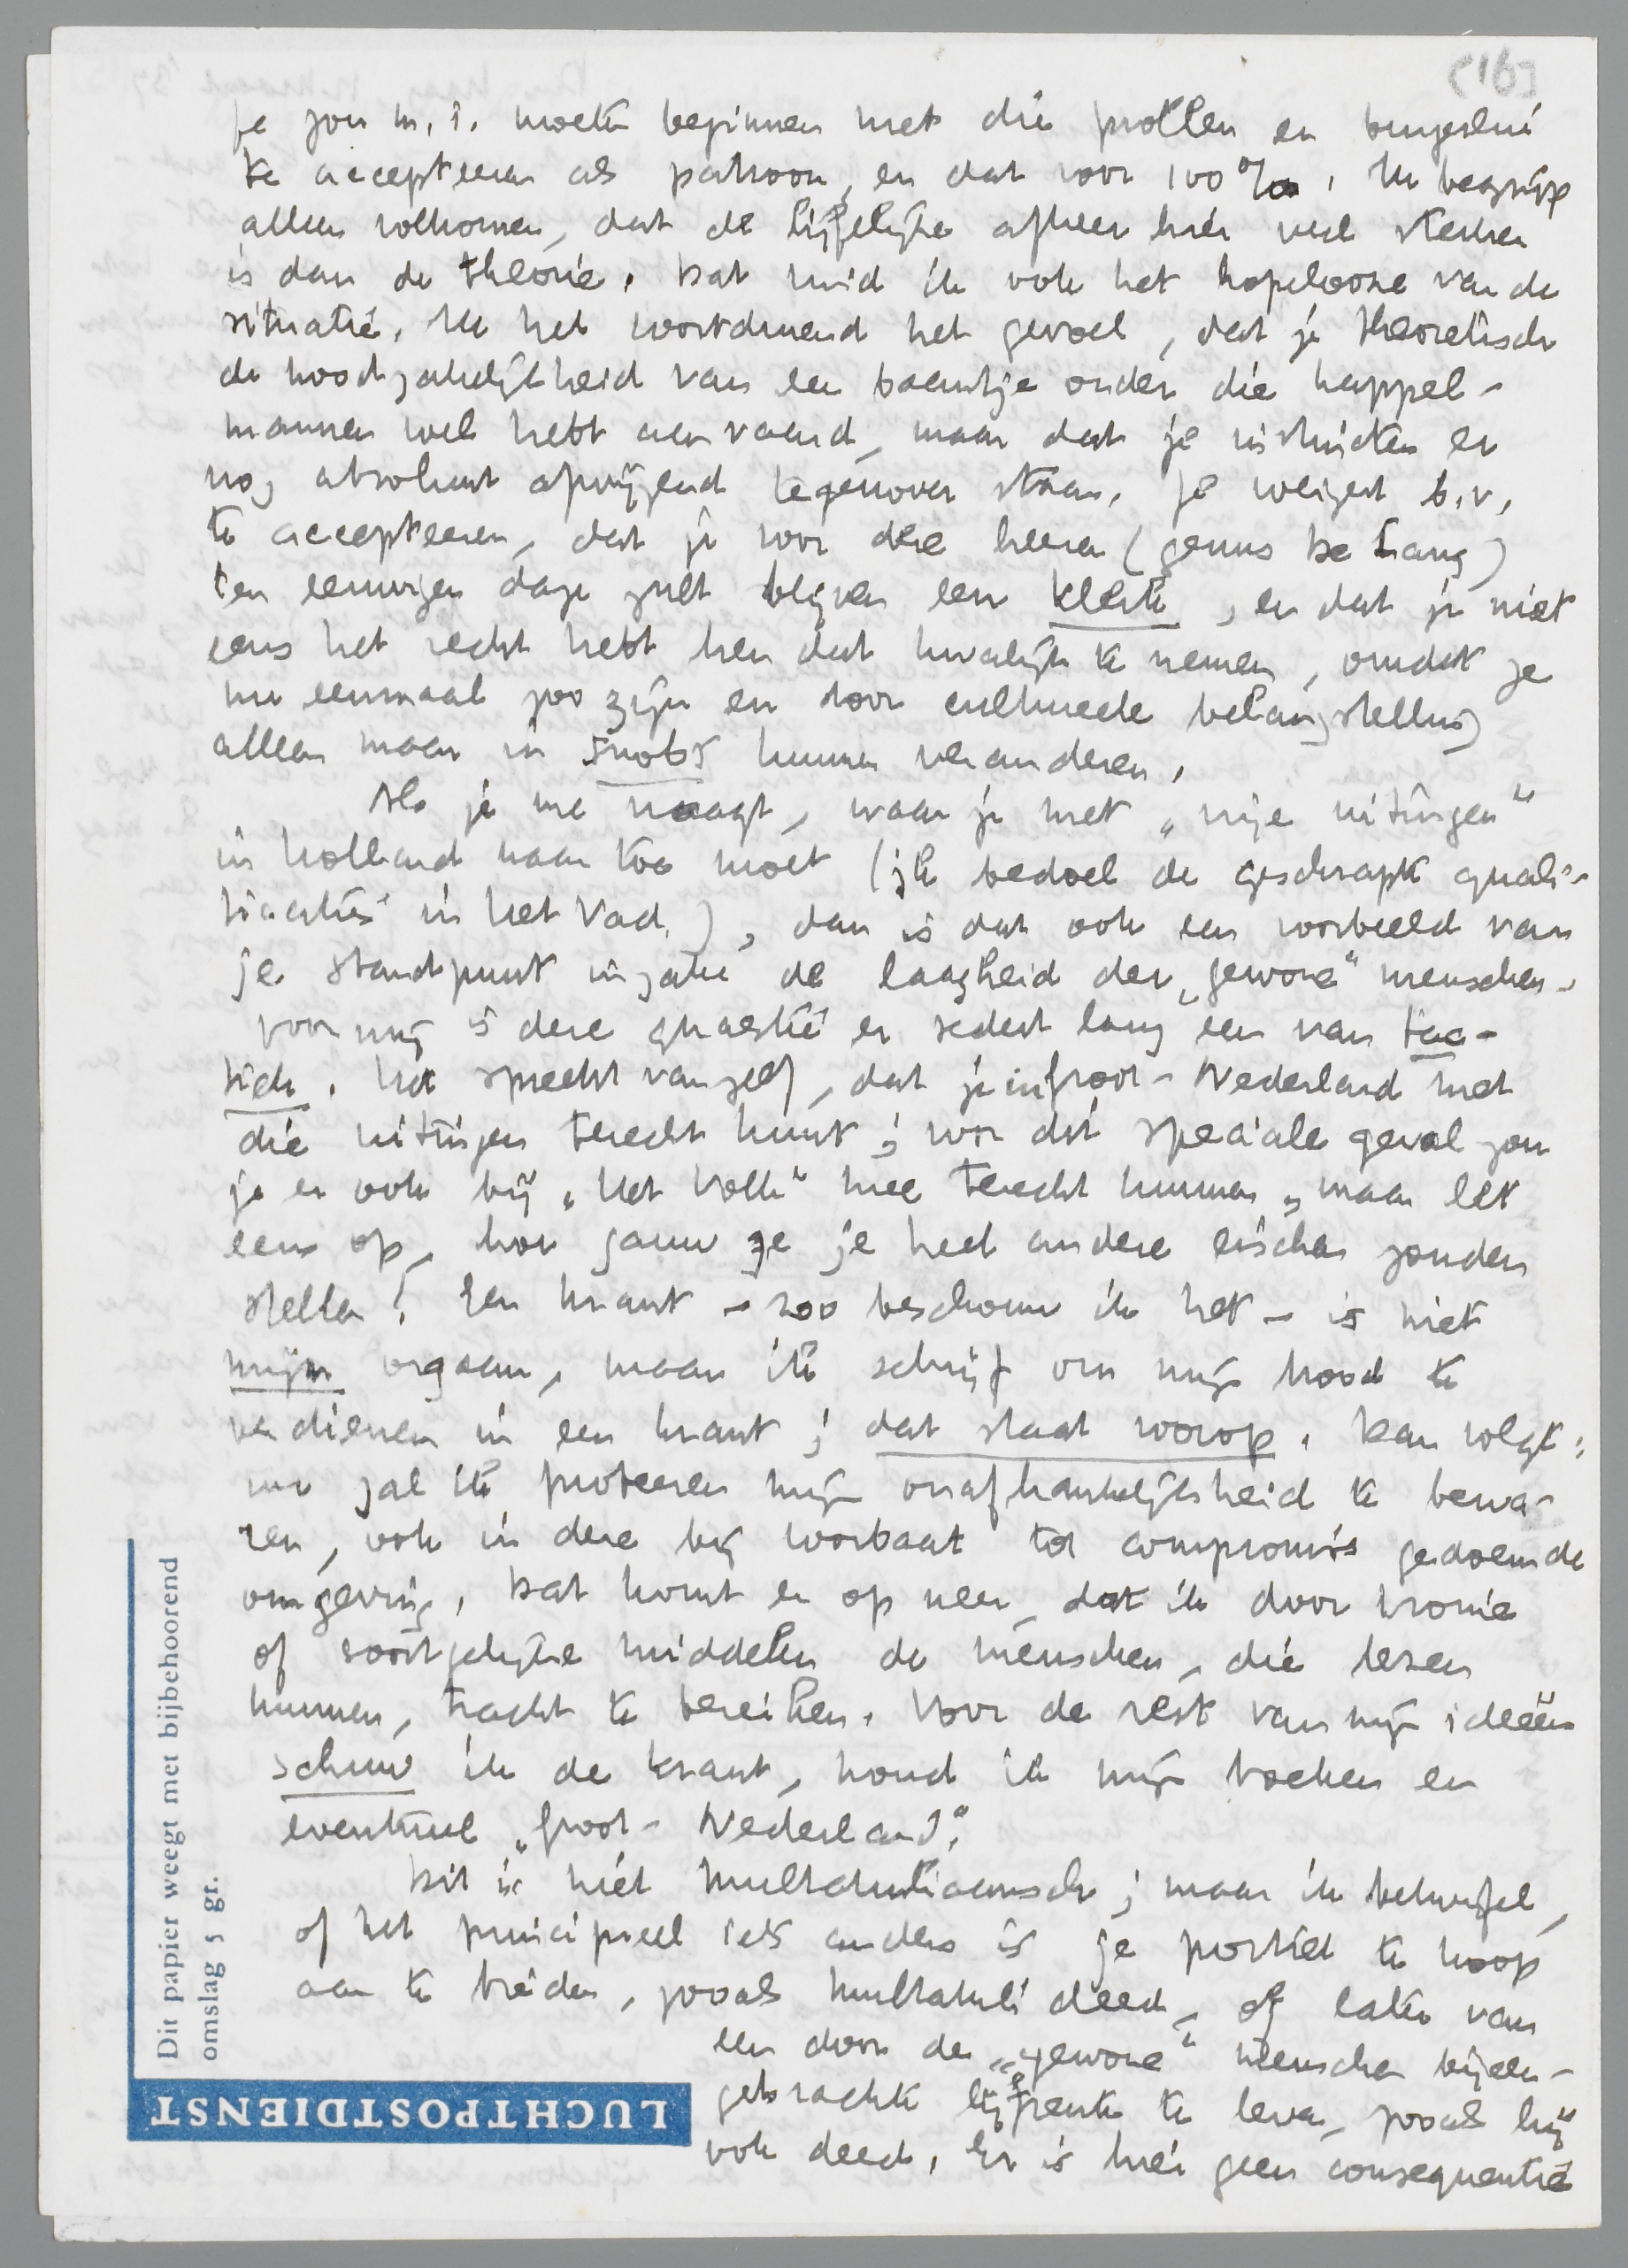 [91]
Je zou m.i. moeten beginnen met die prollen en bourgeoisie
te accepteeren als patroon, en dat voor 100%. Ik begrijp
alleen volkomen, dat de lijfelijke afkeer hier veel sterker
is dan de theorie. Dat vind ik ook het hopelooze van de
situatie. Ik heb voortdurend het gevoel, dat je theoretisch
de noodzakelijkheid van een baantje onder die kappel-
mannen wel hebt aanvaard, maar dat je instincten er
nog absoluut afwijzend tegenover staan. Je weigert b.v.
te accepteeren, dat je voor deze heeren (genus De Lang)
ten eeuwigen dage zult blijven een klerk, en dat je niet
eens het recht hebt hen dat kwalijk te nemen, omdat ze
nu eenmaal zoo zijn en door cultureele belangstelling
alleen maar in snobs kunnen veranderen.
Als je me vraagt, waar je met „vrije uitingen"
in Holland naar toe moet (ik bedoel de geschrapte quali-
ficaties in het Vad.), dan is dat ook een voorbeeld van
je standpunt inzake de laagheid der „gewone" menschen.
Voor mij is deze quaestie er sedert lang een van tac-
tiek. Het spreekt vanzelf, dat je in Groot-Nederland met
die uitingen terecht kunt; voor dit speciale geval zou
je er ook bij „Het Volk" mee terecht kunnen, maar let
eens op, hoe gauw ze je heel andere eischen zouden
stellen! Een krant – zoo beschouw ik het – is niet
mijn orgaan, maar ik schrijf om mijn brood te
verdienen in een krant; dat staat voorop. Dan volgt:
nu zal ik probeeren mijn onafhankelijkheid te bewa-
ren, ook in deze bij voorbaat tot compromis gedoemde
omgeving. Dat komt er op neer, dat ik door ironie
of soortgelijke middelen de menschen, die lezen
kunnen, tracht te bereiken. Voor de rest van mijn ideeën
schuw ik de krant, houd ik mijn boeken en
eventueel „Groot-Nederland".
Dit is niet Multatuliaansch; maar ik betwijfel,
of het principieel iets anders is je portret te koop
aan te bieden, zooals Multatuli deed, of later van
een door de „gewone" menschen bijeen-
gebrachte lijfrente te leven, zooals hij
ook deed. Er is hier geen consequentie
Dit papier weegt met bijbehoorend
omslag 5 gr.
LUCHTPOSTDIENST